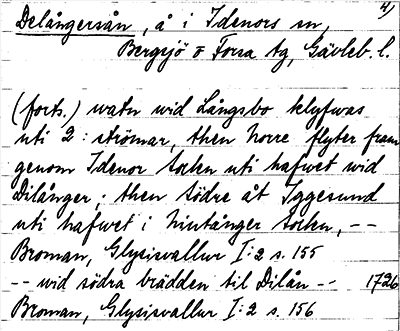 4)
Delångersån, å i Idenors sn,
Bergsjö o Forsa tg, Gävleb. l.
(forts.) watn wid Långsbo klyfwas
uti 2: strömar, then Norre flyter fram
genom Idenor Sochen uti hafwet wid
Dilånger; then södre åt Iggesund
uti hafwet i Niutånger Sochn, --
Broman, Glysisvallur I:2 s. 155
-- wid södra brädden til Dilån -- 1726
Broman, Glysisvallur I:2 s. 156